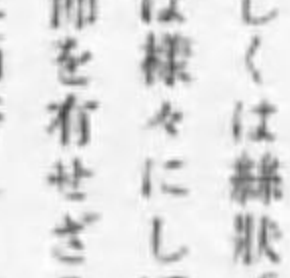 しくは絲狀
は様々にし
を有せざ